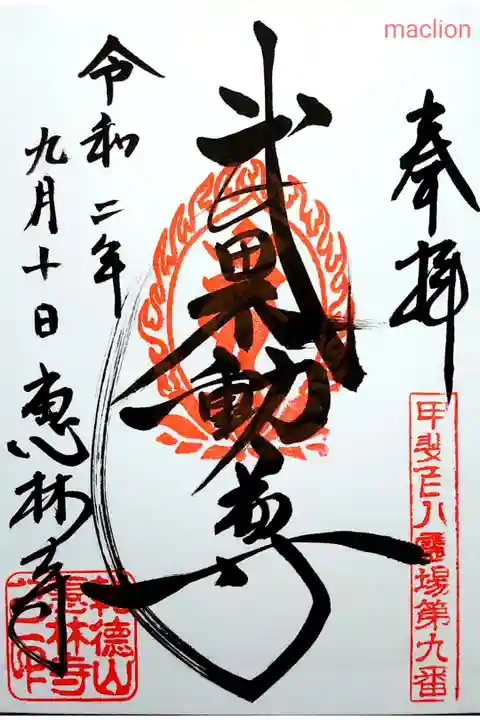 maclion
奉拝
甲斐百八霊場第九番
武田不動尊
令和二年
九月十日 恵林寺
乾徳山
恵林寺